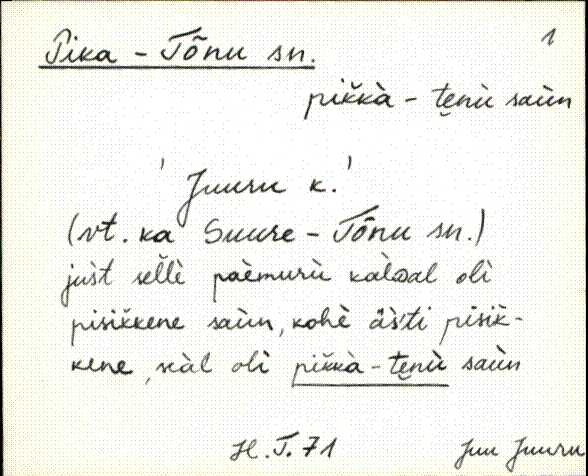 Pika - Tõnu sn. 1
pikkà - te̮nù saùn
'Juuru k.'
(vt. ka Suure - Tõnu sn.)
jùst sellè paèmurù kàldal olì
pisikkene saùn, kohè äs̀ti pisik-
kene, seàl olì pikkà - te̮nù saùn
H. T. 71 Juu Juuru